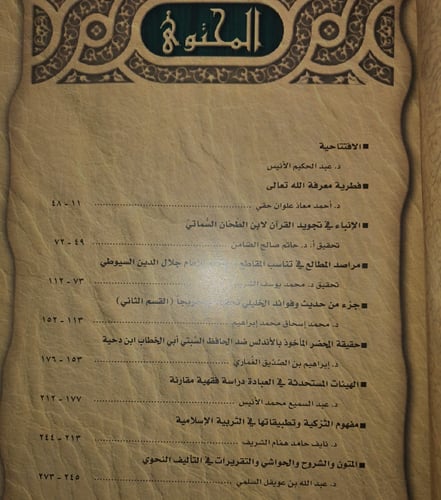 المحتوى
■ الافتتاحية
د. عبد الحكيم الأنيس
■ فطرية معرفة الله تعالى
د. أحمد معاذ علوان حقي ٤٨ - ١١
■ الإنباء في تجويد القرآن لابن الطحان السُّماتي
تحقيق أ. د. حاتم صالح الضامن ٧٢ - ٤٩
■ مراصد المطالع في تناسب المقاطع للإمام جلال الدين السيوطي
تحقيق د. محمد يوسف ١١٢ - ٧٣
■ جزء من حديث وفوائد الخليلي (القسم الثاني)
د. محمد إسحاق محمد إبراهيم ١٥٢ - ١١٣
■ حقيقة المحضر المأخوذ بالأندلس ضد الحافظ السبتي أبي الخطاب ابن دحية
د. إبراهيم بن الصديق الغماري ١٧٦ - ١٥٣
■ الهيئات المستحدثة في العبادة دراسة فقهية مقارنة
د. عبد السميع محمد الأنيس ٢١٢ - ١٧٧
■ مفهوم التزكية وتطبيقاتها في التربية الإسلامية
د. نايف حامد همام الشريف ٢٤٤ - ٢١٣
■ المتون والشروح والحواشي والتقريرات في التأليف النحوي
د. عبد الله بن عويقل السلمي ٢٧٣ - ٢٤٥